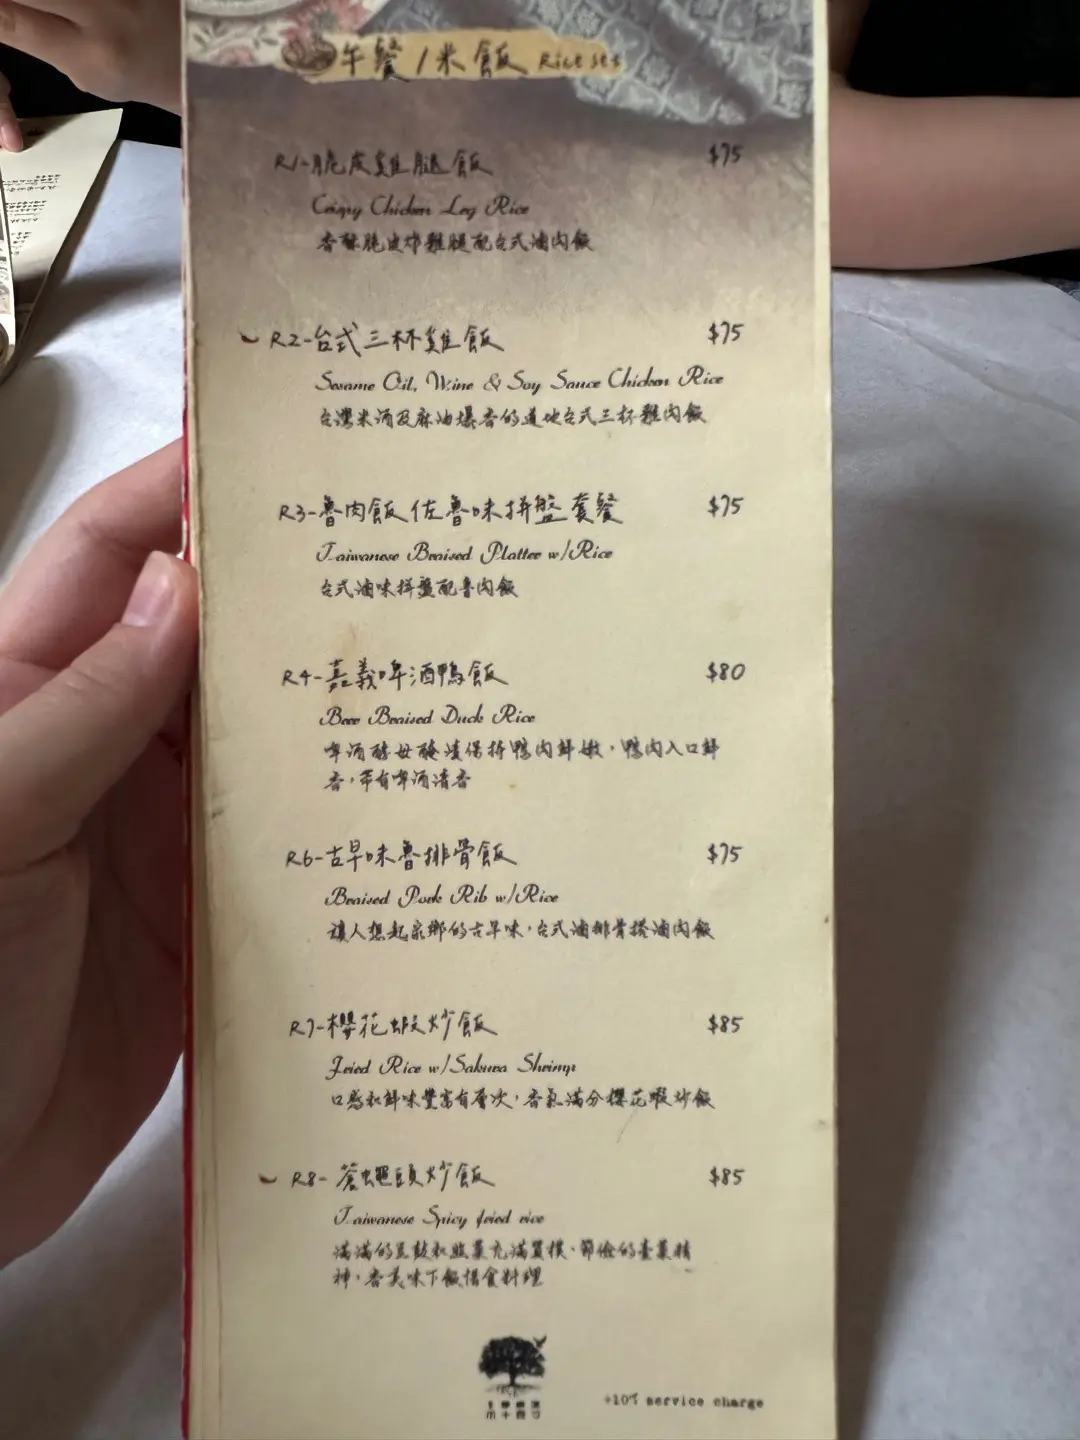 午餐/米飯 Rice set
R1-脆皮雞腿飯 $75
Crispy Chicken Leg Rice
香酥脆皮炸雞腿配台式滷肉飯
R2-台式三杯雞飯 $75
Sesame Oil, Wine & Soy Sauce Chicken Rice
台灣米酒及麻油爆香的道地台式三杯雞肉飯
R3-魯肉飯佐魯味拼盤套餐 $75
Taiwanese Braised Platter w/Rice
台式滷味拼盤配魯肉飯
R4-嘉義啤酒鴨飯 $80
Beer Braised Duck Rice
啤酒酵母醃漬保持鴨肉鮮嫩，鴨肉入口鮮
香，帶有啤酒清香
R6-古早味魯排骨飯 $75
Braised Pork Rib w/Rice
讓人想起家鄉的古早味，台式滷排骨搭滷肉飯
R7-櫻花蝦炒飯 $85
Fried Rice w/Sakura Shrimp
口感和鮮味豐富有層次，香氣滿分櫻花蝦炒飯
R8-蒼蠅頭炒飯 $85
Taiwanese Spicy fried rice
滿滿的豆鼓和韭菜充滿質樸、節儉的臺菜精
神，香美味下飯惜食料理
+10% service charge